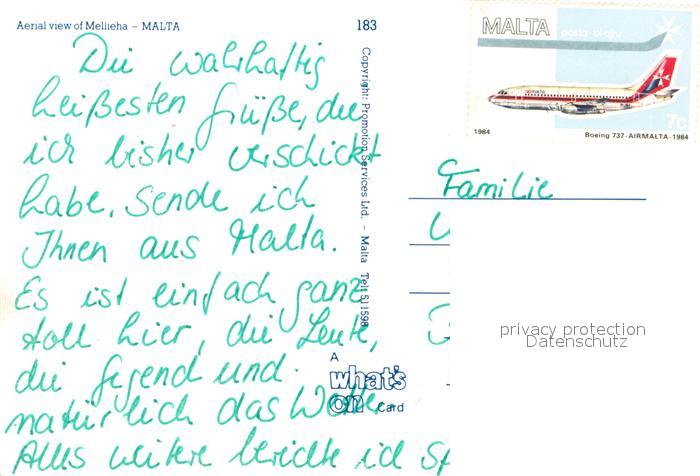 Aerial view of Mellieha – MALTA
183
Die wahrhaftig
heißesten Grüße, die
ich bisher verschickt
habe, sende ich
Ihnen aus Malta.
Es ist einfach ganz
toll hier, die Leute,
die Gegend und
natürlich das Wetter.
Alles weitere berichte ich
Copyright: Promotion Services Ltd. – Malta Tel: 511598
A
what's
on Card
MALTA posta bl-ajru
7c
1984 Boeing 737-AIRMALTA-1984
Familie
privacy protection
Datenschutz